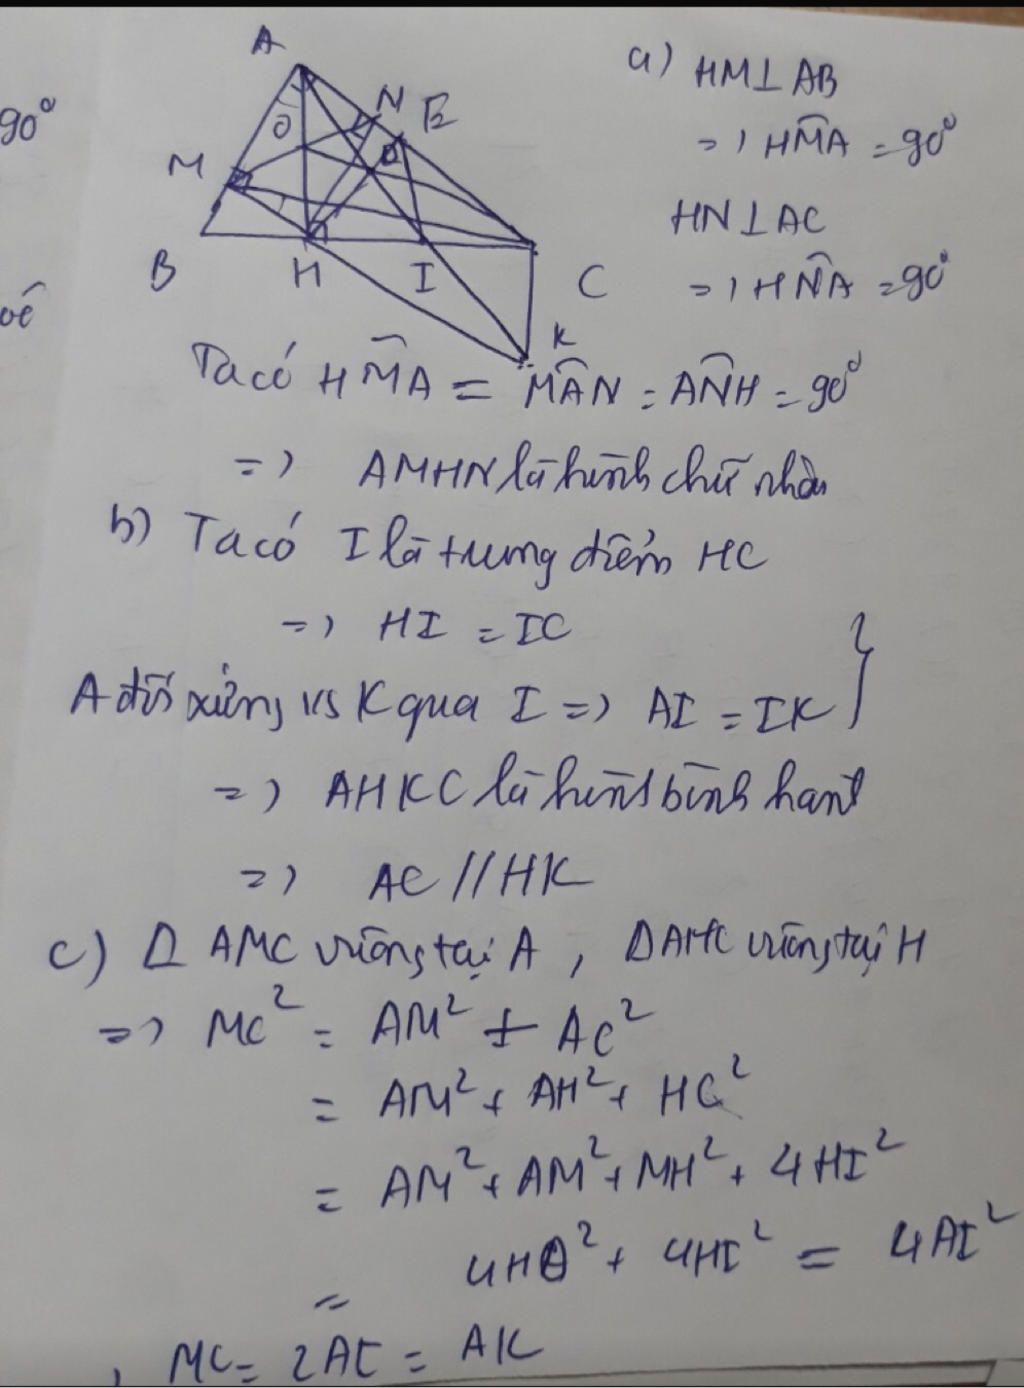 90°
A
N
E
O
M
B
H
I
C
K
a) HM⊥AB
=> HMA = 90°
HN⊥AC
=> HNA = 90°
Ta có HMA = MAN = ANH = 90°
=> AMHN là hình chữ nhật
b) Ta có I là trung điểm HC
=> HI = IC
A đối xứng vs K qua I => AI = IK }
=> AHKC là hình bình hành
=> AC // HK
c) Δ AMC vuông tại A, ΔAHC vuông tại H
=> MC² = AM² + AC²
= AM² + AH² + HC²
= AM² + AM² + MH² + 4HI²
= 4HO² + 4HI² = 4AI²
MC = 2AI = AK